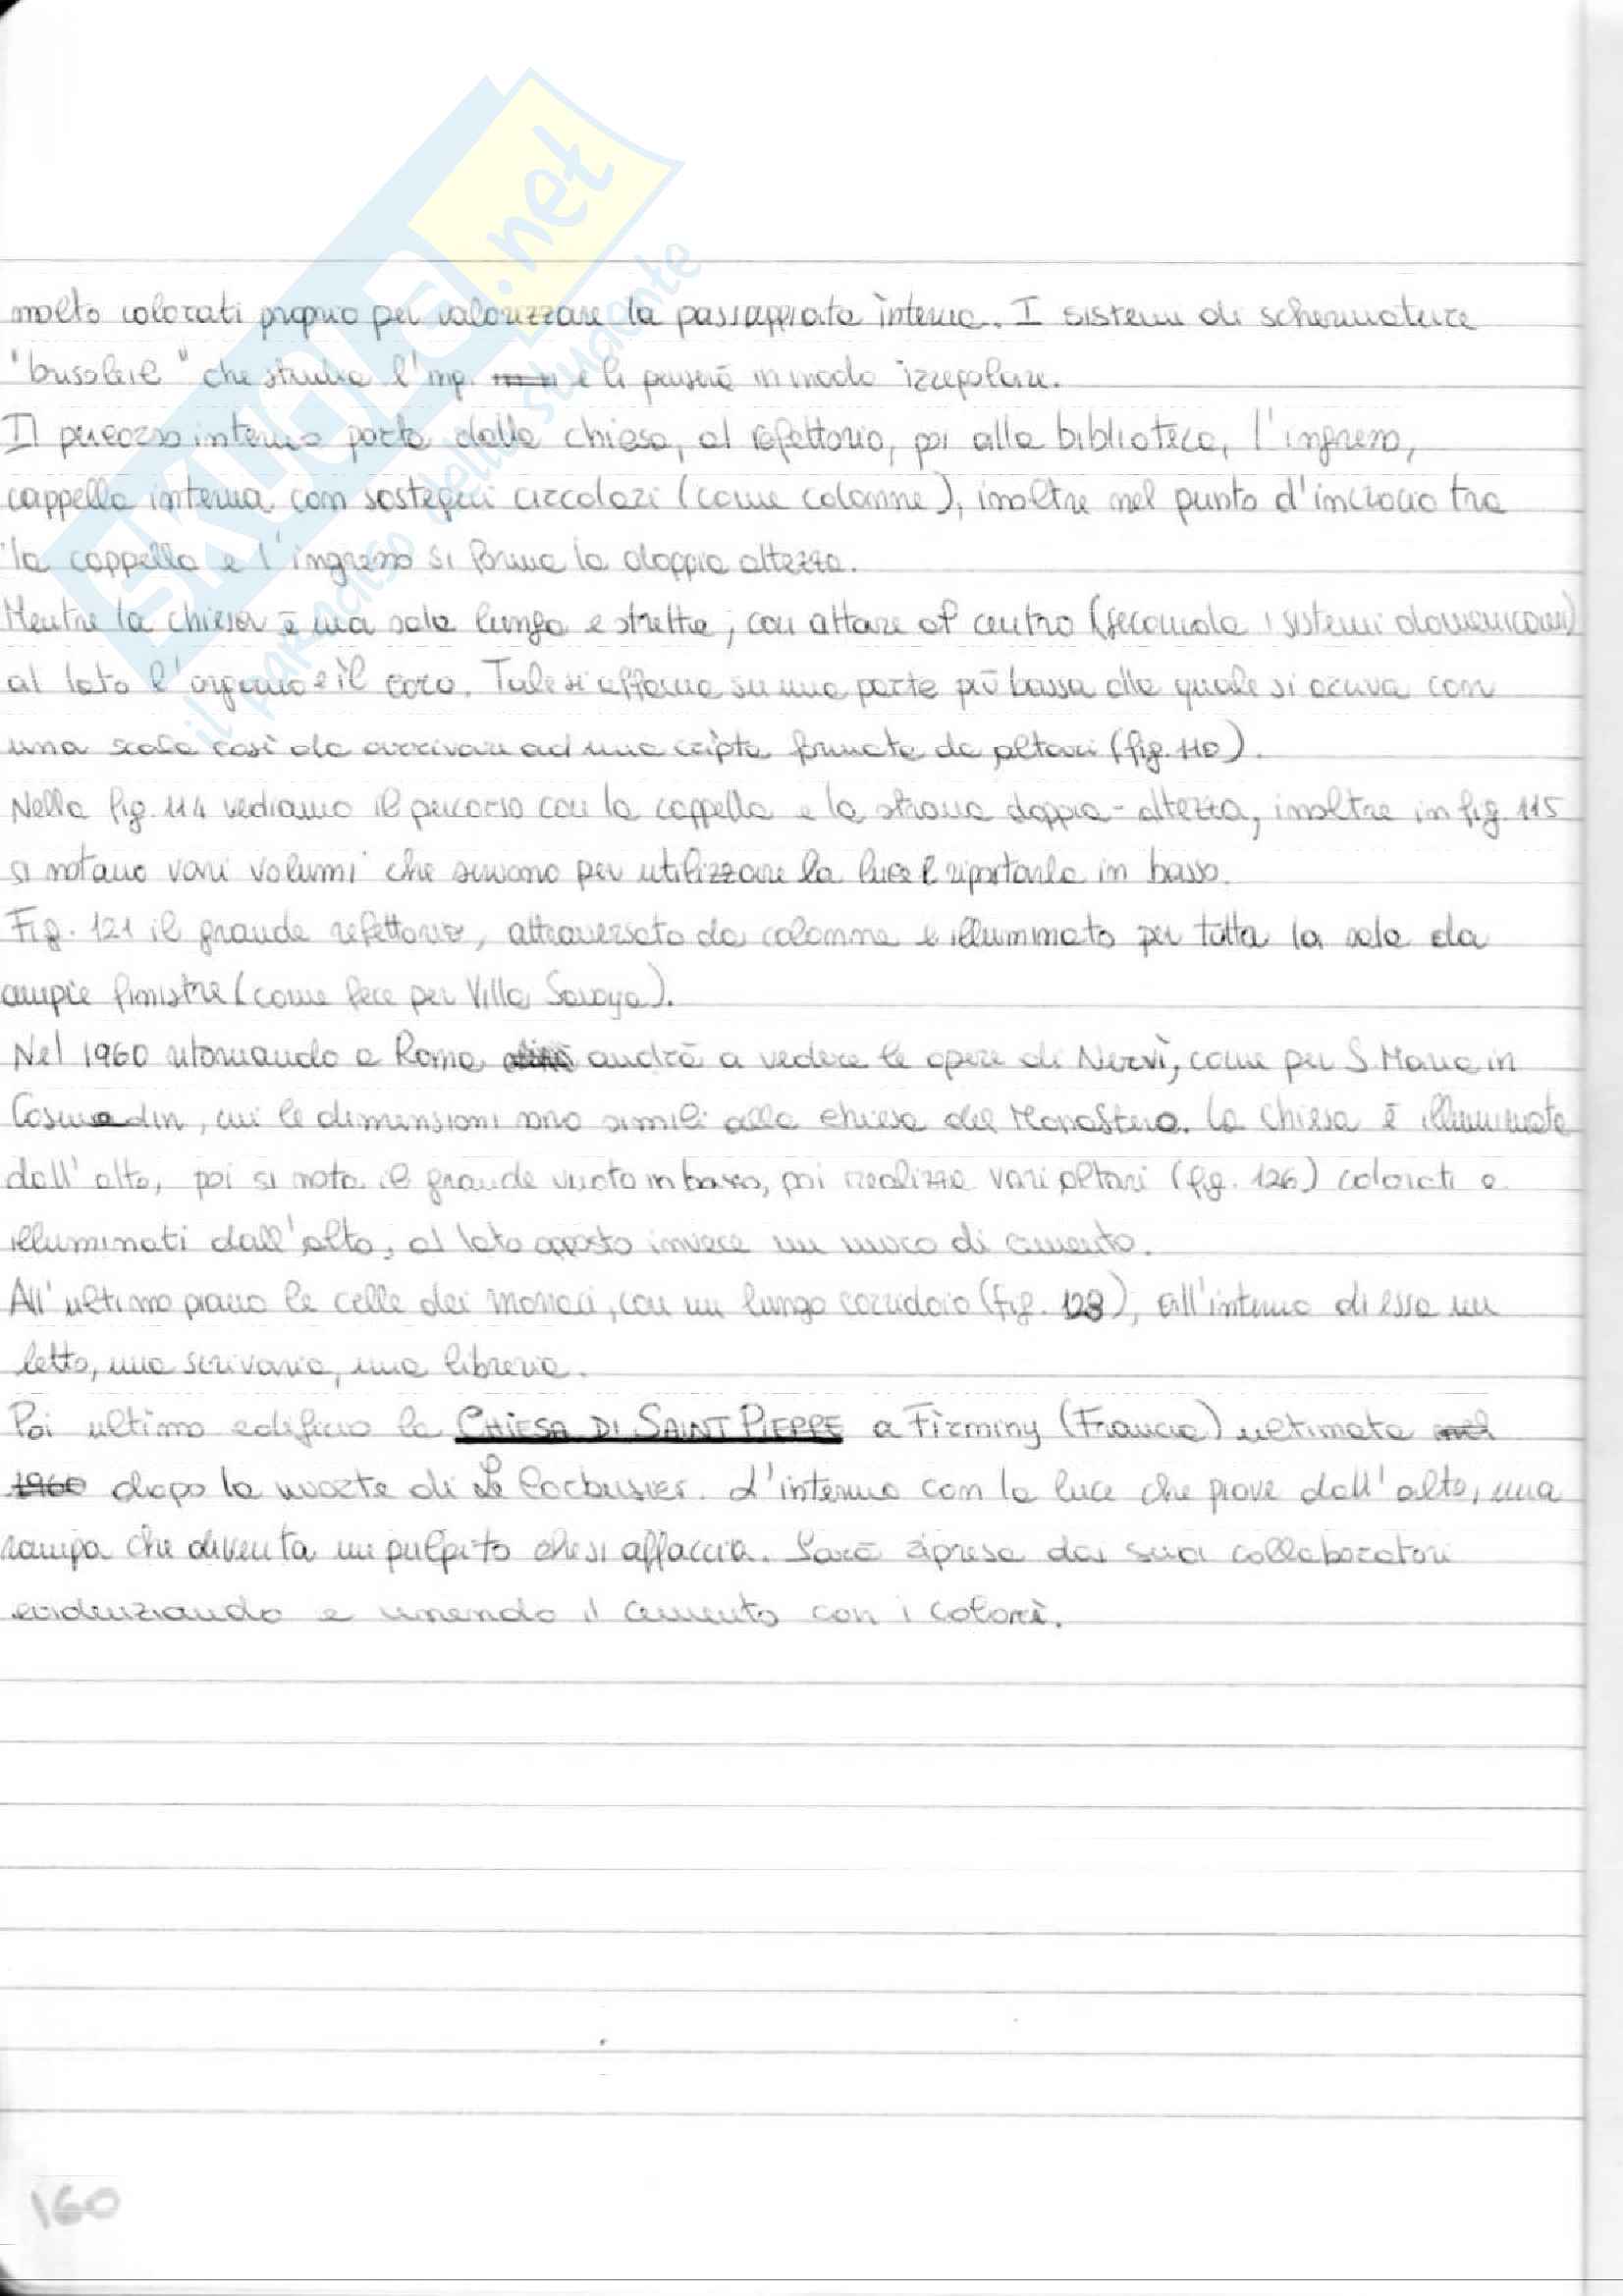 SKUOLA.net
il paradiso dello studente
molto colorati proprio per valorizzare la passeggiata interna. I sistemi di schermature
"brisoleil" che studia l'ing. e li penserà in modo irregolare.
Il percorso interno parte dalla chiesa, al refettorio, poi alla biblioteca, l'ingresso,
cappella interna con sostegni circolari (come colonne), inoltre nel punto d'incrocio tra
la cappella e l'ingresso si forma la doppia altezza.
Mentre la chiesa è una sala lunga e stretta, con altare al centro (secondo i sistemi domenicani)
al lato l'organo e il coro. Tale si affaccia su una parte più bassa alla quale si arriva con
una scala così da arrivare ad una cripta formata da altari (fig. 110).
Nella fig. 114 vediamo il percorso con la cappella e la strana doppia-altezza, inoltre in fig. 115
si notano vari volumi che servono per utilizzare la luce e riportarla in basso.
Fig. 121 il grande refettorio, attraversato da colonne e illuminato per tutta la sala da
ampie finistre (come fece per Villa Savoya).
Nel 1960 ritornando a Roma andrà a vedere le opere di Nervi, come per S. Maria in
Cosmedin, cui le dimensioni sono simili alla chiesa del Monastero. La chiesa è illuminata
dall'alto, poi si nota il grande vuoto in basso, poi realizza vari altari (fig. 126) colorati e
illuminati dall'alto, al lato opposto invece un muro di cemento.
All'ultimo piano le celle dei monaci, con un lungo corridoio (fig. 128), all'interno di essa un
letto, una scrivania, una libreria.
Poi ultimo edificio la CHIESA DI SAINT PIERRE a Firminy (Francia) ultimata nel
1960 dopo la morte di Le Corbusier. L'interno con la luce che piove dall'alto, una
rampa che diventa un pulpito che si affaccia. Sarà ripresa dai suoi collaboratori
evidenziando e unendo il cemento con i colori.
160